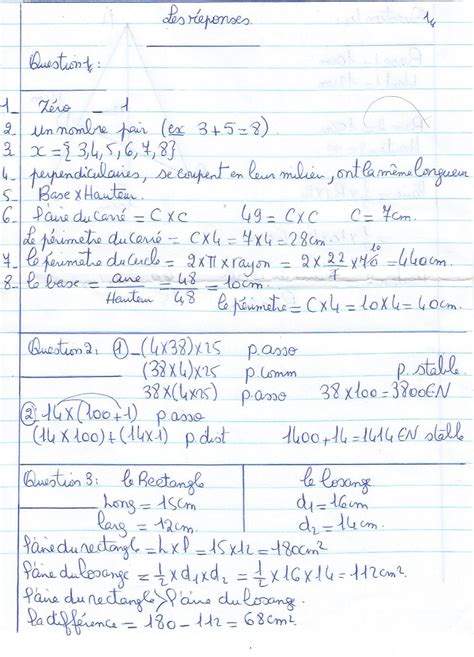 Les réponses.
1
Question 1:
1_ Zéro _ 1
2_ un nombre pair (ex 3+5=8)
3. x = {3,4,5,6,7,8}
4_ perpendiculaires, se coupent en leur milieu, ont la même longueur
5_ Base x Hauteur
6_ l'aire du carré = C x C 49 = C x C C = 7cm.
Le périmètre du carré = C x 4 = 7 x 4 = 28cm.
7_ le périmètre du cercle = 2 x π x rayon = 2 x 22/7 x 70 10 = 440cm
8_ le base = aire/Hauteur = 48/48 = 10cm.
le périmètre = C x 4 = 10 x 4 = 40cm.
Question 2: ① _ (4 x 38) x 25 p. asso
(38 x 4) x 25 p comm p. stable
38 x (4 x 25) p. asso 38 x 100 = 3800 ∈ N
② 14 x (100 + 1) p asso
(14 x 100) + (14 x 1) p. dist 1400 + 14 = 1414 ∈ N stable
Question 3: le Rectangle le losange
Long = 15cm d1 = 16cm
larg = 12cm. d2 = 14cm.
l'aire du rectangle = L x l = 15 x 12 = 180cm²
l'aire du losange = 1/2 x d1 x d2 = 1/2 x 16 x 14 = 112cm².
l'aire du rectangle > l'aire du losange.
la différence = 180 - 112 = 68cm².